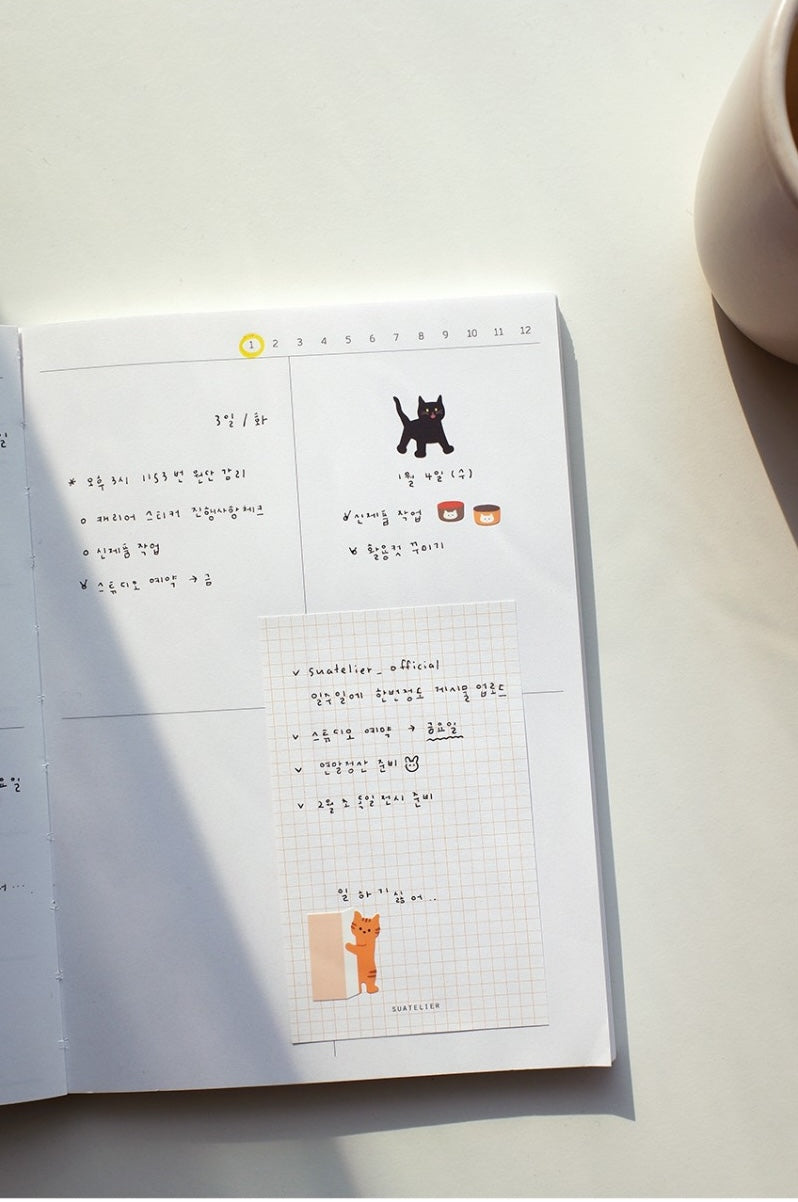 1 2 3 4 5 6 7 8 9 10 11 12
3일 / 화
* 오후 3시 1153번 원단 감리
o 캐리어 스티커 진행사항체크
o 신제품 작업
v 스튜디오 예약 → 금
1월 4일 (수)
v 신제품 작업
v 활용컷 꾸미기
v suatelier_official
일주일에 한번정도 게시물 업로드
v 스튜디오 예약 → 금요일
v 연말정산 준비
v 2월 초 독일전시 준비
일하기싫어..
SUATELIER
일
요일